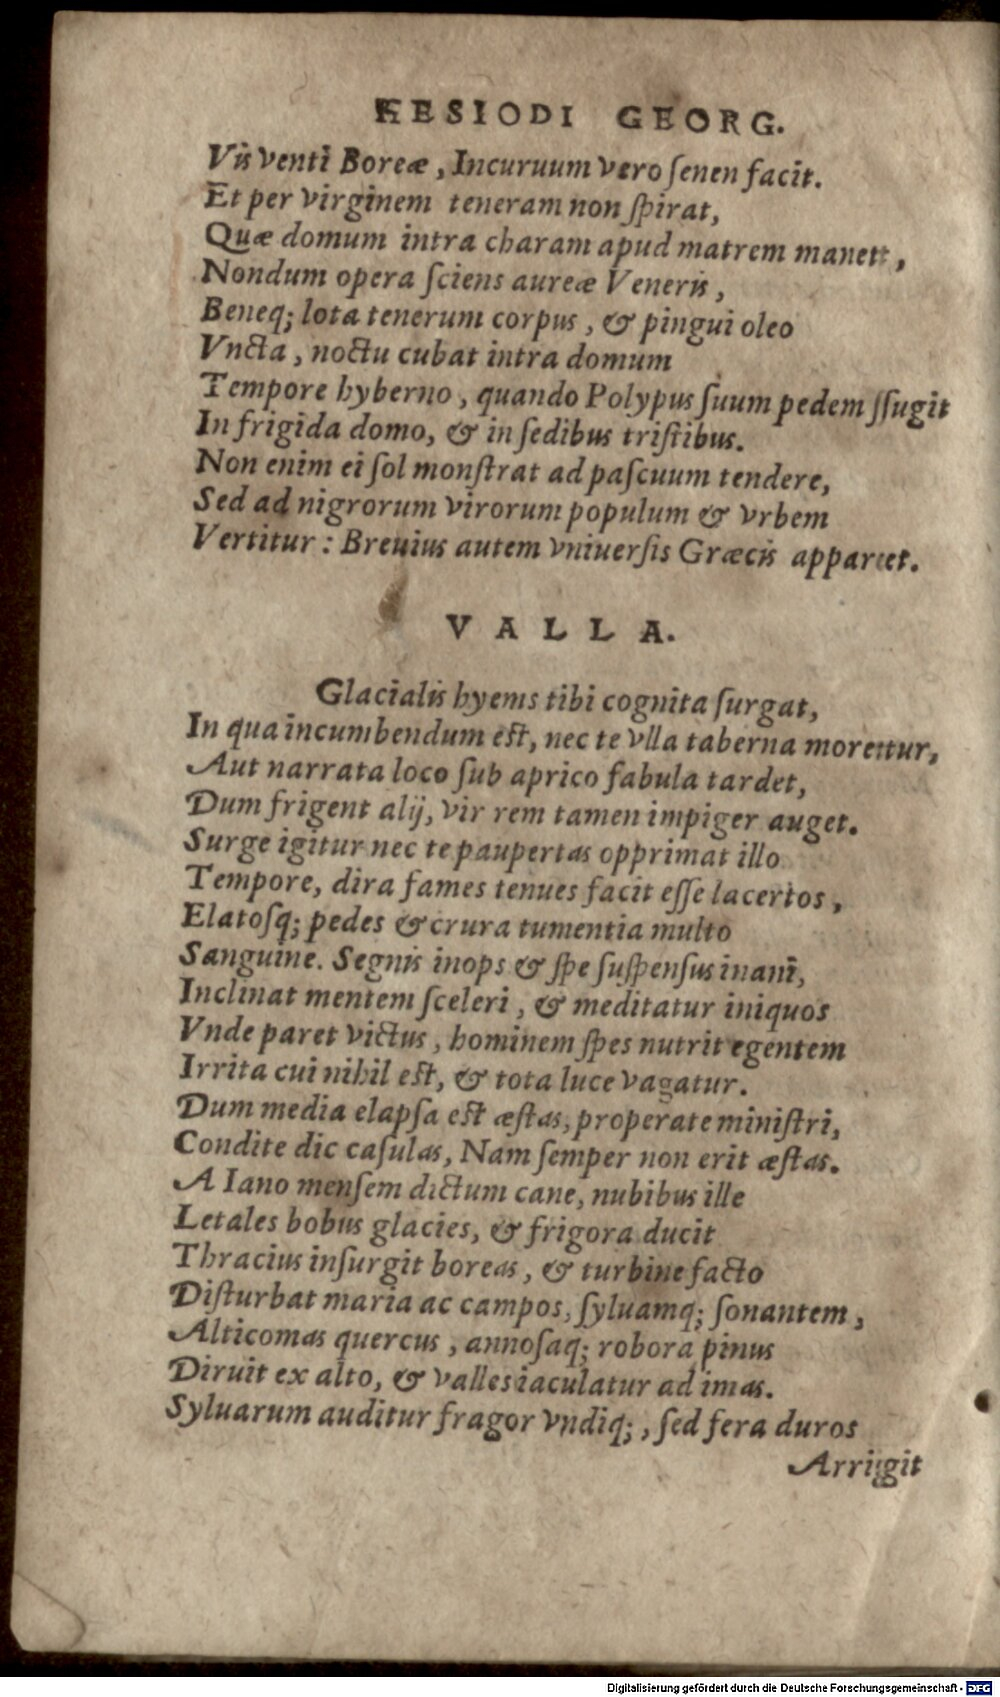 HESIODI GEORG.
Vis venti Boreæ, Incuruum vero ſenen facit.
Et per virginem teneram non ſpirat,
Quæ domum intra charam apud matrem manet,
Nondum opera ſciens aureæ Veneris,
Beneq; lota tenerum corpus, & pingui oleo
Vncta, noctu cubat intra domum
Tempore hyberno, quando Polypus ſuum pedem ſſugit
In frigida domo, & in ſedibus triſtibus.
Non enim ei ſol monſtrat ad paſcuum tendere,
Sed ad nigrorum virorum populum & vrbem
Vertitur: Breuius autem vniuerſis Græcis apparet.
VALLA.
Glacialis hyems tibi cognita ſurgat,
In qua incumbendum eſt, nec te vlla taberna moretur,
Aut narrata loco ſub aprico fabula tardet,
Dum frigent alij, vir rem tamen impiger auget.
Surge igitur nec te paupertas opprimat illo
Tempore, dira fames tenues facit eſſe lacertos,
Elatoſq; pedes & crura tumentia multo
Sanguine. Segnis inops & ſpe ſuſpenſus inani,
Inclinat mentem ſceleri, & meditatur iniquos
Vnde paret victus, hominem ſpes nutrit egentem
Irrita cui nihil eſt, & tota luce vagatur.
Dum media elapſa eſt æſtas, properate miniſtri,
Condite dic caſulas, Nam ſemper non erit æſtas.
A Iano menſem dictum cane, nubibus ille
Letales bobus glacies, & frigora ducit
Thracius inſurgit boreas, & turbine facto
Diſturbat maria ac campos, ſyluamq; ſonantem,
Alticomas quercus, annoſaq; robora pinus
Diruit ex alto, & valles iaculatur ad imas.
Syluarum auditur fragor vndiq;, ſed fera duros
Arrigit
Digitalisierung gefördert durch die Deutsche Forschungsgemeinschaft - DFG